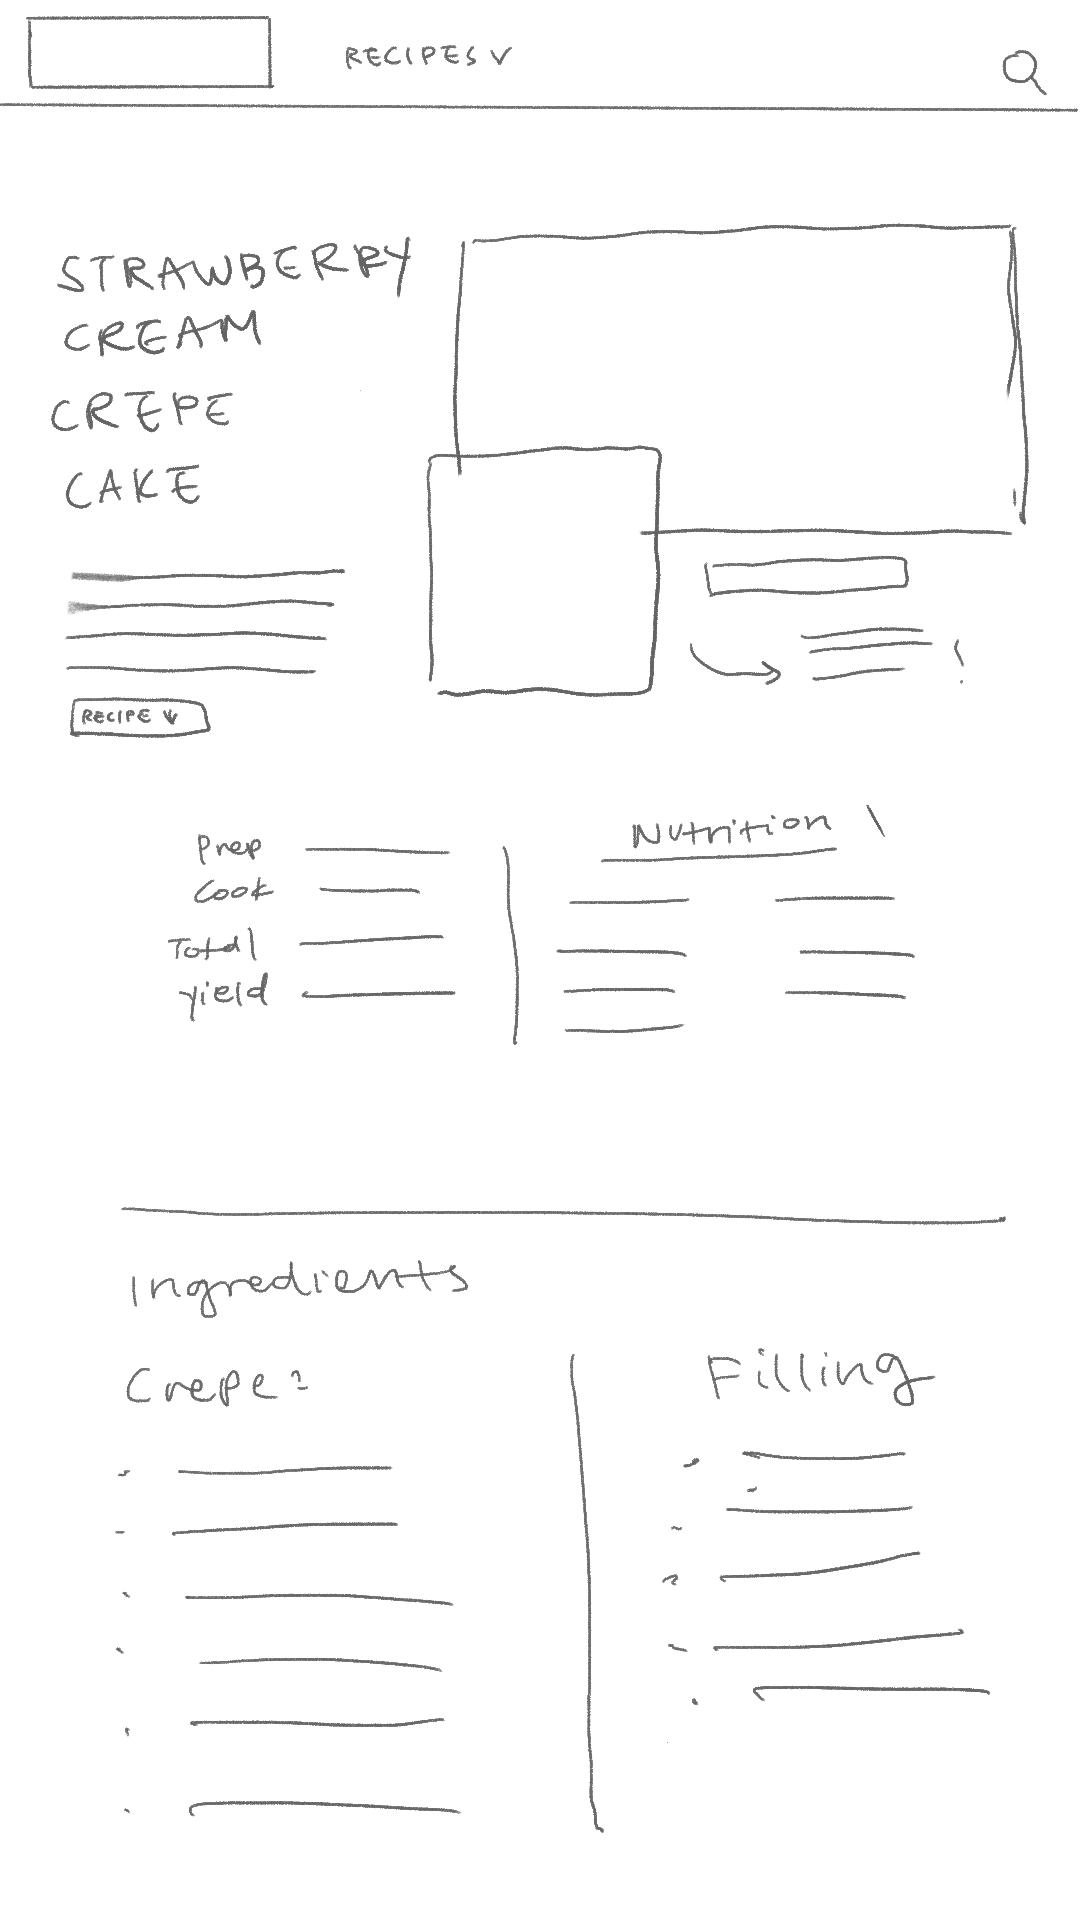 RECIPES
STRAWBERRY
CREAM
CREPE
CAKE
RECIPE
Prep
Cook
Total
Yield
Nutrition
Ingredients
Crepe:
Filling